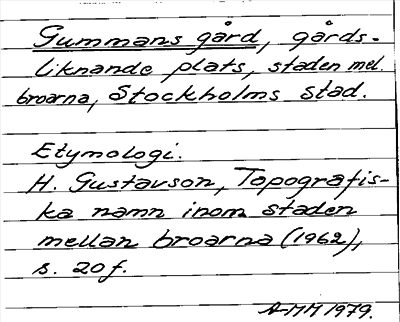 Gummans gård, gårds-
liknande plats, staden mel.
broarna, Stockholms stad.
Etymologi.
H. Gustavson, Topografis-
ka namn inom staden
mellan broarna (1962),
s. 20 f.
AMM 1979.